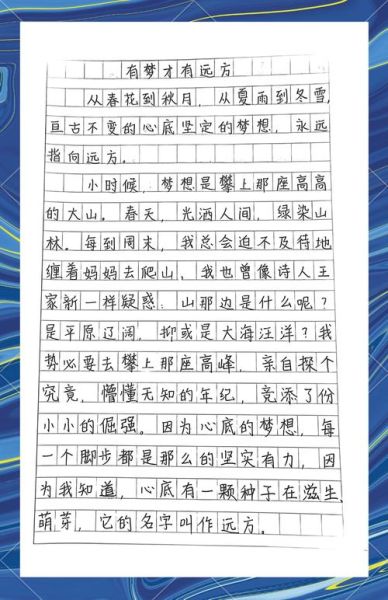 有梦才有远方
从春花到秋月，从夏雨到冬雪，
亘古不变的心底坚定的梦想，永远
指向远方。
小时候，梦想是攀上那座高高
的大山。春天，光洒人间，绿染山
林。每到周末，我总会迫不及待地
缠着妈妈去爬山、我也曾像诗人王
家新一样疑惑：山那边是什么呢？
是平原辽阔，抑或是大海汪洋？我
势必要去攀上那座高峰，亲自探个
究竟，懵懂无知的年纪，竞添了份
小小的倔强。因为心底的梦想，每
一个脚步都是那么的坚实有力，因
为我知道，心底有一颗种子在滋生、
萌芽，它的名字叫作远方。